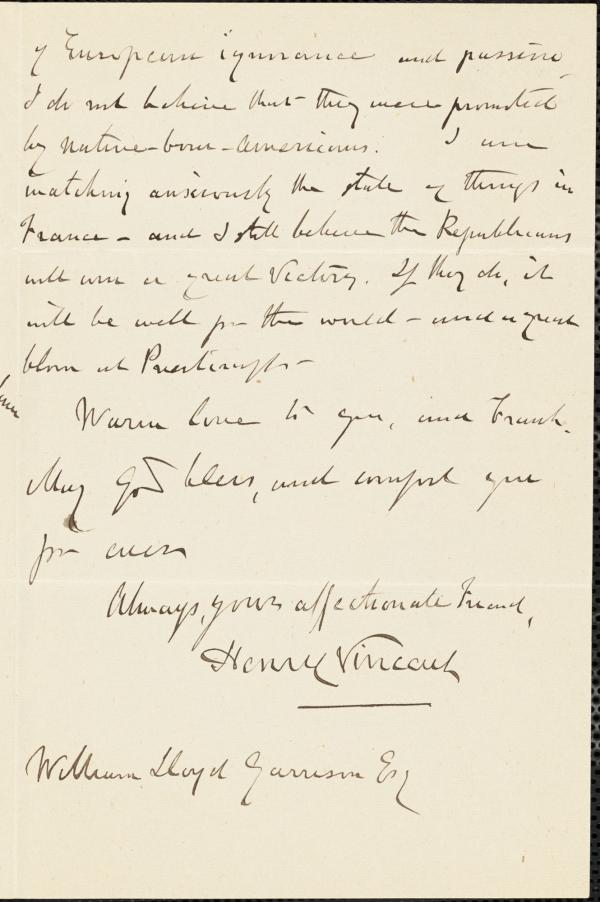 of European ignorance and passion,
I do not believe that they were promoted
by native-born-Americans. I am
watching anxiously the state of things in
France - and I still believe the Republicans
will win a great Victory. If they do, it
will be well for the world - and a great
blow at Priestcraft -
Warm love to you, and Frank.
May God bless, and comfort you
for ever
Always, yours affectionate Friend,
Henry Vincent
William Lloyd Garrison Esq